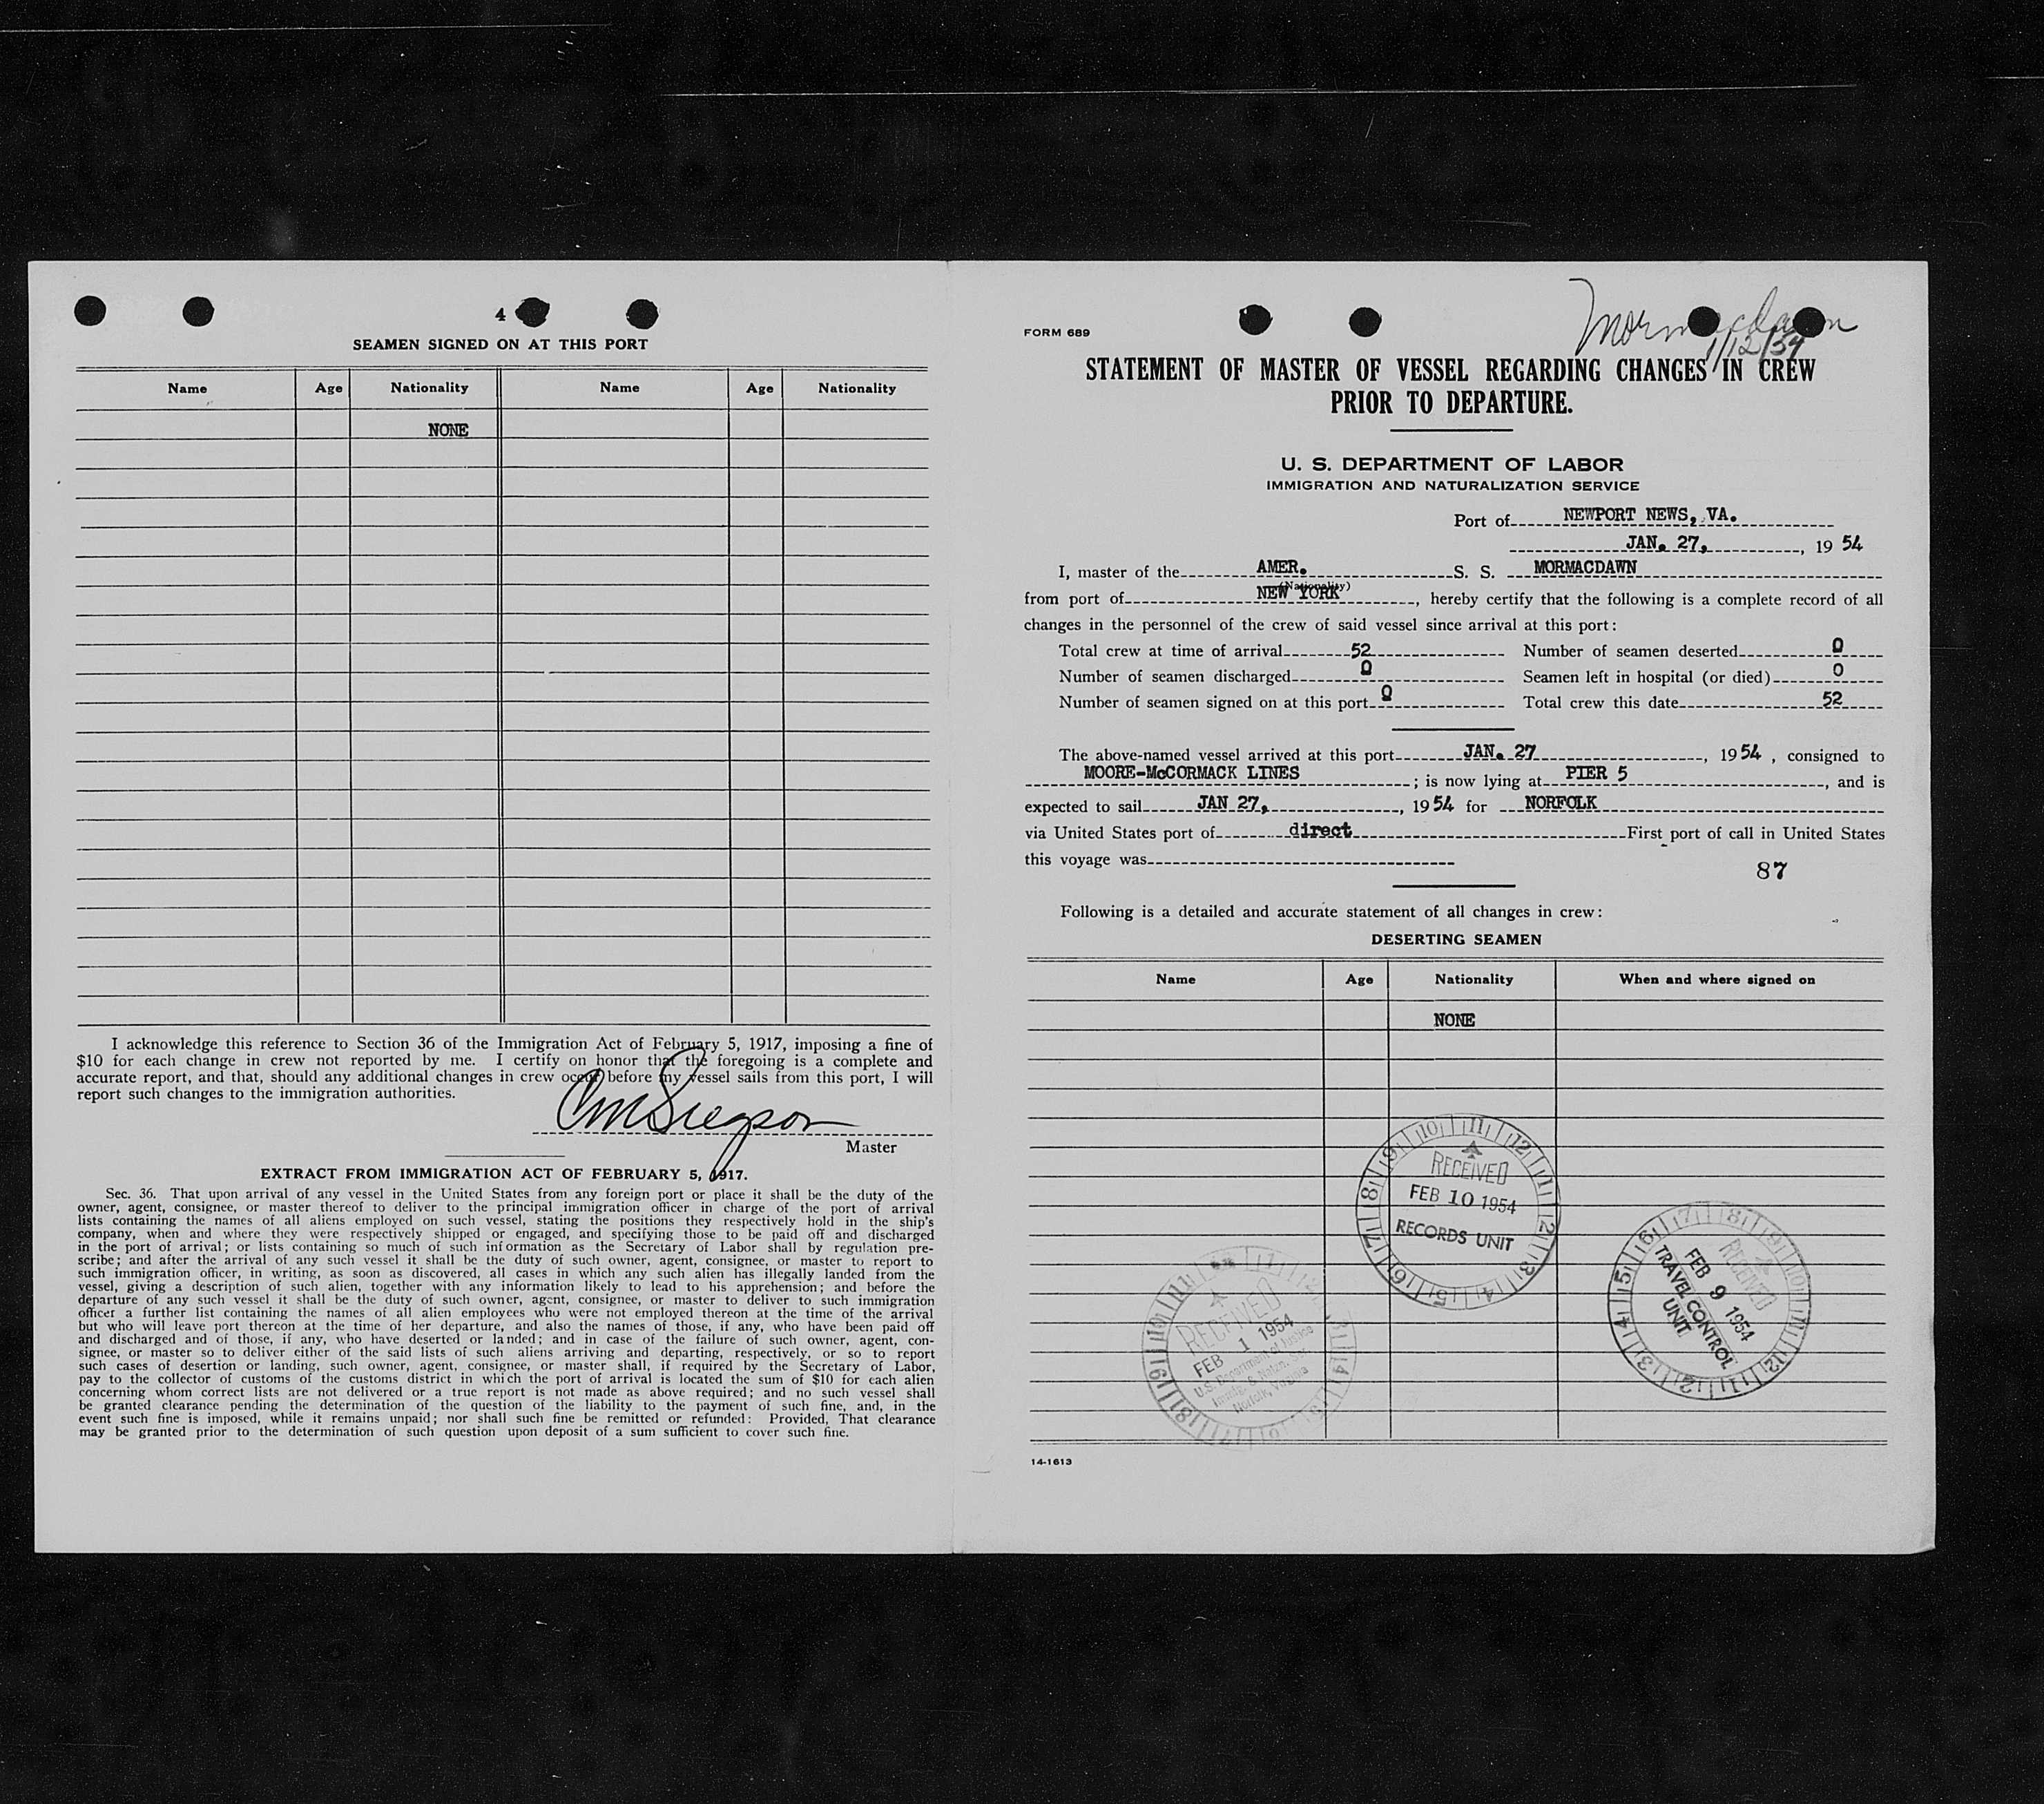 4
SEAMEN SIGNED ON AT THIS PORT
Name Age Nationality Name Age Nationality
NONE
I acknowledge this reference to Section 36 of the Immigration Act of February 5, 1917, imposing a fine of
$10 for each change in crew not reported by me. I certify on honor that the foregoing is a complete and
accurate report, and that, should any additional changes in crew occur before my vessel sails from this port, I will
report such changes to the immigration authorities.
Master
EXTRACT FROM IMMIGRATION ACT OF FEBRUARY 5, 1917.
Sec. 36. That upon arrival of any vessel in the United States from any foreign port or place it shall be the duty of the
owner, agent, consignee, or master thereof to deliver to the principal immigration officer in charge of the port of arrival
lists containing the names of all aliens employed on such vessel, stating the positions they respectively hold in the ship's
company, when and where they were respectively shipped or engaged, and specifying those to be paid off and discharged
in the port of arrival; or lists containing so much of such information as the Secretary of Labor shall by regulation pre-
scribe; and after the arrival of any such vessel it shall be the duty of such owner, agent, consignee, or master to report to
such immigration officer, in writing, as soon as discovered, all cases in which any such alien has illegally landed from the
vessel, giving a description of such alien, together with any information likely to lead to his apprehension; and before the
departure of any such vessel it shall be the duty of such owner, agent, consignee, or master to deliver to such immigration
officer a further list containing the names of all alien employees who were not employed thereon at the time of the arrival
but who will leave port thereon at the time of her departure, and also the names of those, if any, who have been paid off
and discharged and of those, if any, who have deserted or landed; and in case of the failure of such owner, agent, con-
signee, or master so to deliver either of the said lists of such aliens arriving and departing, respectively, or so to report
such cases of desertion or landing, such owner, agent, consignee, or master shall, if required by the Secretary of Labor,
pay to the collector of customs of the customs district in which the port of arrival is located the sum of $10 for each alien
concerning whom correct lists are not delivered or a true report is not made as above required; and no such vessel shall
be granted clearance pending the determination of the question of the liability to the payment of such fine, and, in the
event such fine is imposed, while it remains unpaid; nor shall such fine be remitted or refunded: Provided, That clearance
may be granted prior to the determination of such question upon deposit of a sum sufficient to cover such fine.
FORM 689
Mormacdawn
1/12/54
STATEMENT OF MASTER OF VESSEL REGARDING CHANGES IN CREW
PRIOR TO DEPARTURE.
U. S. DEPARTMENT OF LABOR
IMMIGRATION AND NATURALIZATION SERVICE
Port of NEWPORT NEWS, VA.
JAN. 27, , 19 54
I, master of the AMER. S. S. MORMACDAWN
(Nationality)
from port of NEW YORK , hereby certify that the following is a complete record of all
changes in the personnel of the crew of said vessel since arrival at this port:
Total crew at time of arrival 52 Number of seamen deserted 0
Number of seamen discharged 0 Seamen left in hospital (or died) 0
Number of seamen signed on at this port 0 Total crew this date 52
The above-named vessel arrived at this port JAN. 27 , 19 54 , consigned to
MOORE-McCORMACK LINES ; is now lying at PIER 5 , and is
expected to sail JAN 27, , 19 54 for NORFOLK
via United States port of direct First port of call in United States
this voyage was
87
Following is a detailed and accurate statement of all changes in crew:
DESERTING SEAMEN
Name Age Nationality When and where signed on
NONE
RECEIVED
FEB 10 1954
RECORDS UNIT
RECEIVED
FEB 9 1954
TRAVEL CONTROL
UNIT
RECEIVED
FEB 1 1954
U.S. Department of Justice
Immig. & Natzn. Ser.
Norfolk, Virginia
14-1613